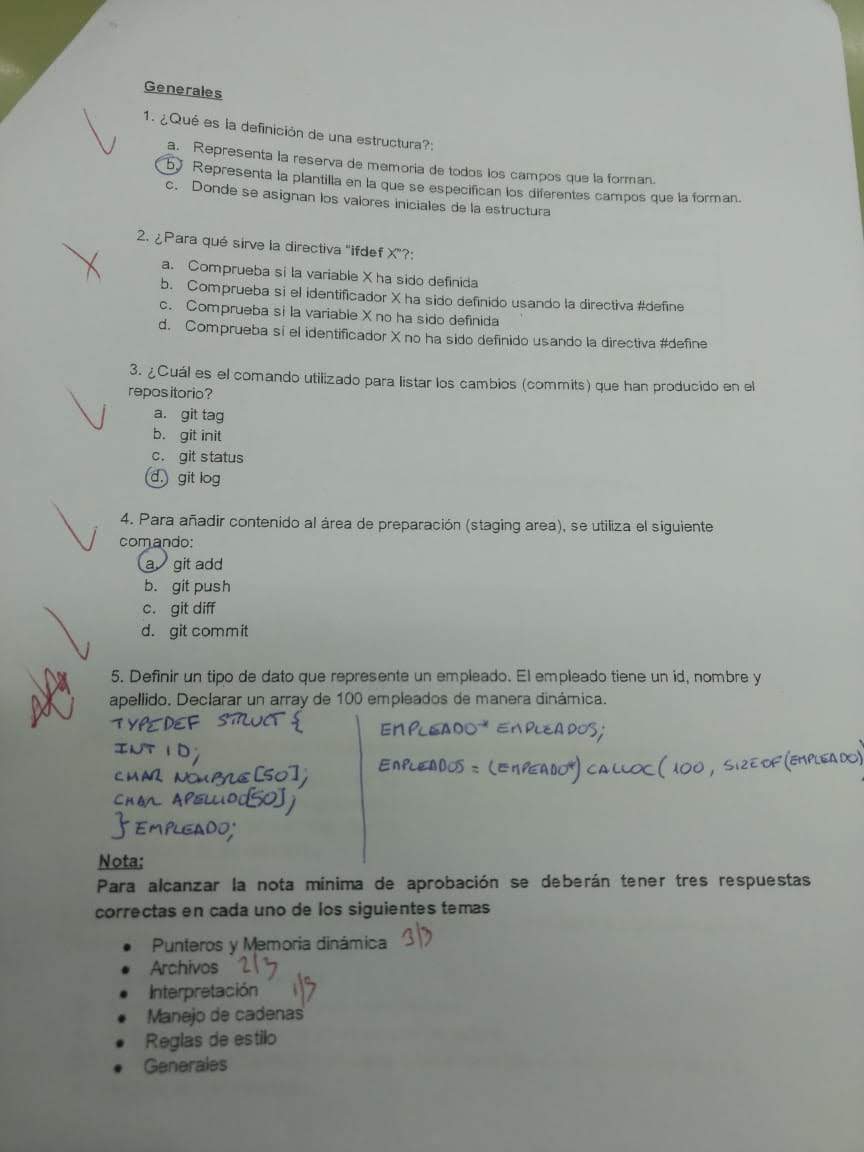 Generales
1. ¿Qué es la definición de una estructura?:
a. Representa la reserva de memoria de todos los campos que la forman.
b. Representa la plantilla en la que se especifican los diferentes campos que la forman.
c. Donde se asignan los valores iniciales de la estructura
2. ¿Para qué sirve la directiva "ifdef X"?:
a. Comprueba si la variable X ha sido definida
b. Comprueba si el identificador X ha sido definido usando la directiva #define
c. Comprueba si la variable X no ha sido definida
d. Comprueba si el identificador X no ha sido definido usando la directiva #define
3. ¿Cuál es el comando utilizado para listar los cambios (commits) que han producido en el
repositorio?
a. git tag
b. git init
c. git status
d. git log
4. Para añadir contenido al área de preparación (staging area), se utiliza el siguiente
comando:
a. git add
b. git push
c. git diff
d. git commit
5. Definir un tipo de dato que represente un empleado. El empleado tiene un id, nombre y
apellido. Declarar un array de 100 empleados de manera dinámica.
TYPEDEF STRUCT {
INT ID;
CHAR NOMBRE[50];
CHAR APELLIDO[50];
} EMPLEADO;
EMPLEADO* EMPLEADOS;
EMPLEADOS = (EMPEADO*) CALLOC(100, SIZEOF(EMPLEADO)
Nota:
Para alcanzar la nota mínima de aprobación se deberán tener tres respuestas
correctas en cada uno de los siguientes temas
• Punteros y Memoria dinámica 3/3
• Archivos 2/3
• Interpretación 1/3
• Manejo de cadenas
• Reglas de estilo
• Generales